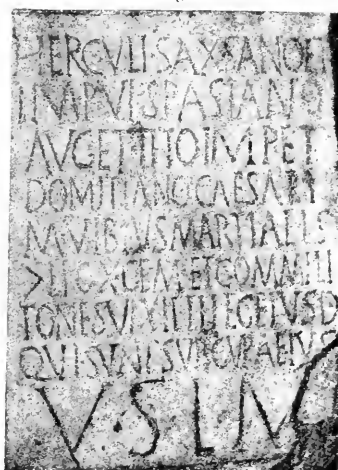 HERCVLI SAXSANO
IMP VESPASIANO
AVG ET TITO IMP ET
DOMITIANO CAESARI
M VIBIVS MARTIALIS
> LEG X GEM ET COMMILI
TONES VEXILLI LEG EIVSD
QVI SVNT SVB CVRA EIVS
V·S L M